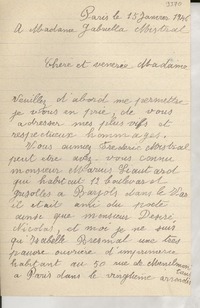 Paris le 15 Janvier 1946
A Madame Gabriella Mistral
Chere et veneree Madame
Veuillez d'abord me permettre
je vous en prie, de vous
adresser mes plus vifs et
respectueux hommages.
Vous aimez Frederic Mistral
peut etre avez vous connu
monsieur Marius
qui habitait 13 boulevard
a Bargols dans le Var
il etait ami du poete
ainsi que monsieur Desire
Nicolas, et moi je ne suis
qu Isabelle une tres
pauvre ouvriere d'imprimerie
habitant au 50 rue de
a Paris dans le vingtieme